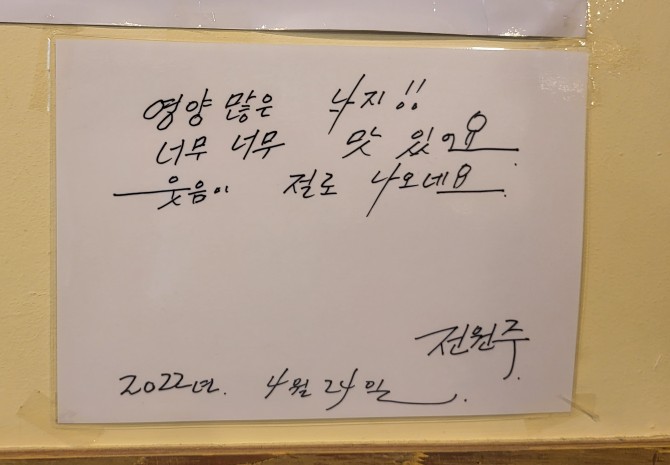 영양 많은 낙지!!
너무 너무 맛 있어요.
웃음이 절로 나오네요.
전원주.
2022년. 4월 24일.